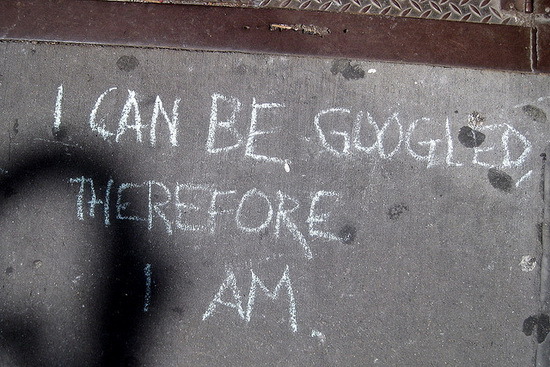 I CAN BE GOOGLED,
THEREFORE
I AM.